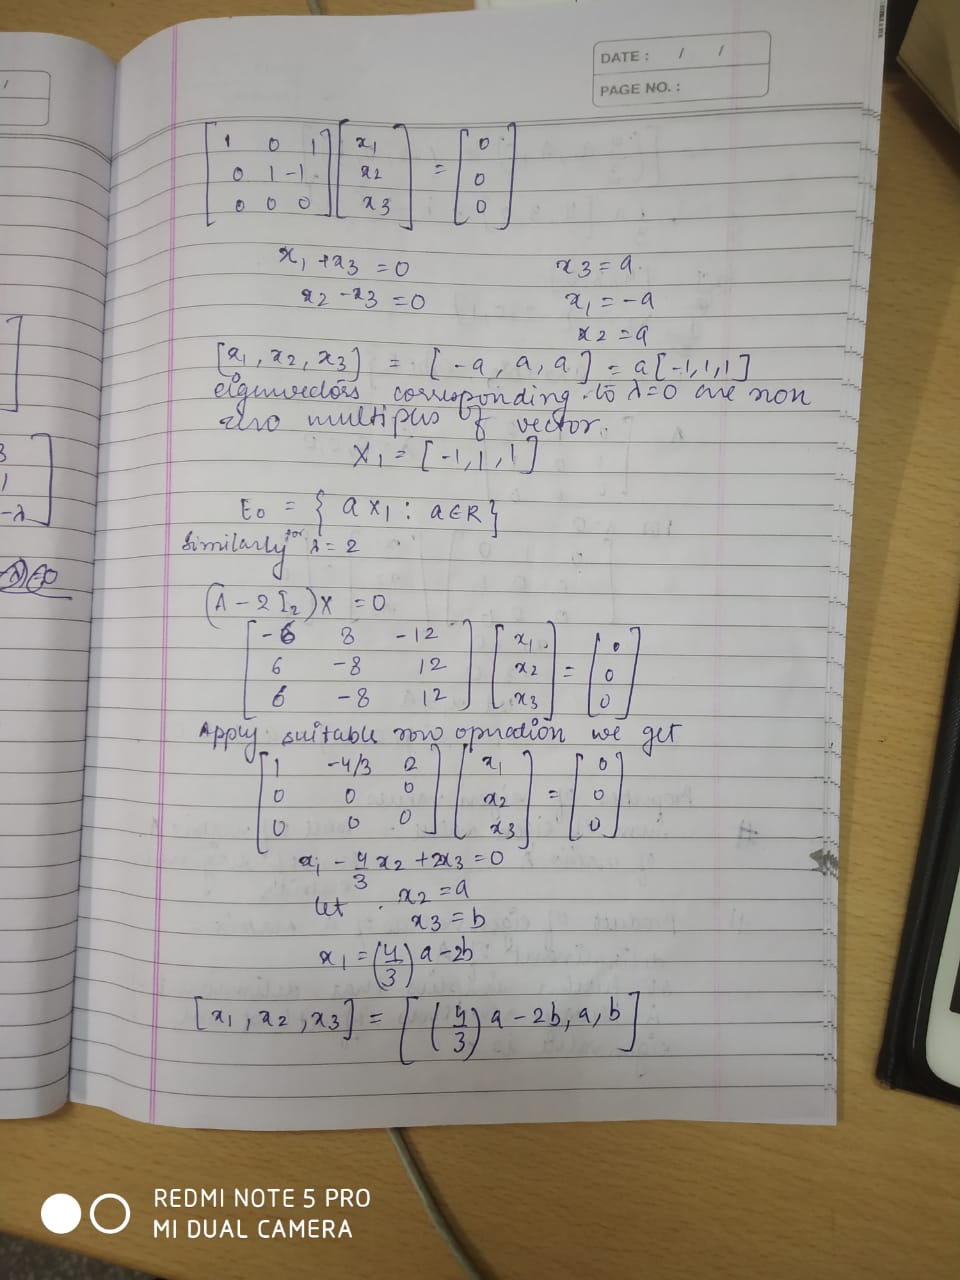 DATE : / /
PAGE NO. :
/
[1 0 1] [x1] = [0]
[0 1 -1] [x2] [0]
[0 0 0] [x3] [0]
x1 + x3 = 0 x3 = a
x2 - x3 = 0 x1 = -a
x2 = a
[x1, x2, x3] = [-a, a, a] = a[-1,1,1]
eigenvectors corresponding to λ=0 are non
zero multiples of vector.
X1 = [-1,1,1]
E0 = { aX1 : a∈R}
Similarly for λ = 2
(A - 2I2)X = 0
[-6 8 -12] [x1] = [0]
[6 -8 12] [x2] [0]
[6 -8 12] [x3] [0]
Apply suitable row operation we get
[1 -4/3 2] [x1] = [0]
[0 0 0] [x2] [0]
[0 0 0] [x3] [0]
x1 - 4/3 x2 + 2x3 = 0
let x2 = a
x3 = b
x1 = (4/3) a - 2b
[x1, x2, x3] = [(4/3) a - 2b, a, b]
3
1
-λ
REDMI NOTE 5 PRO
MI DUAL CAMERA